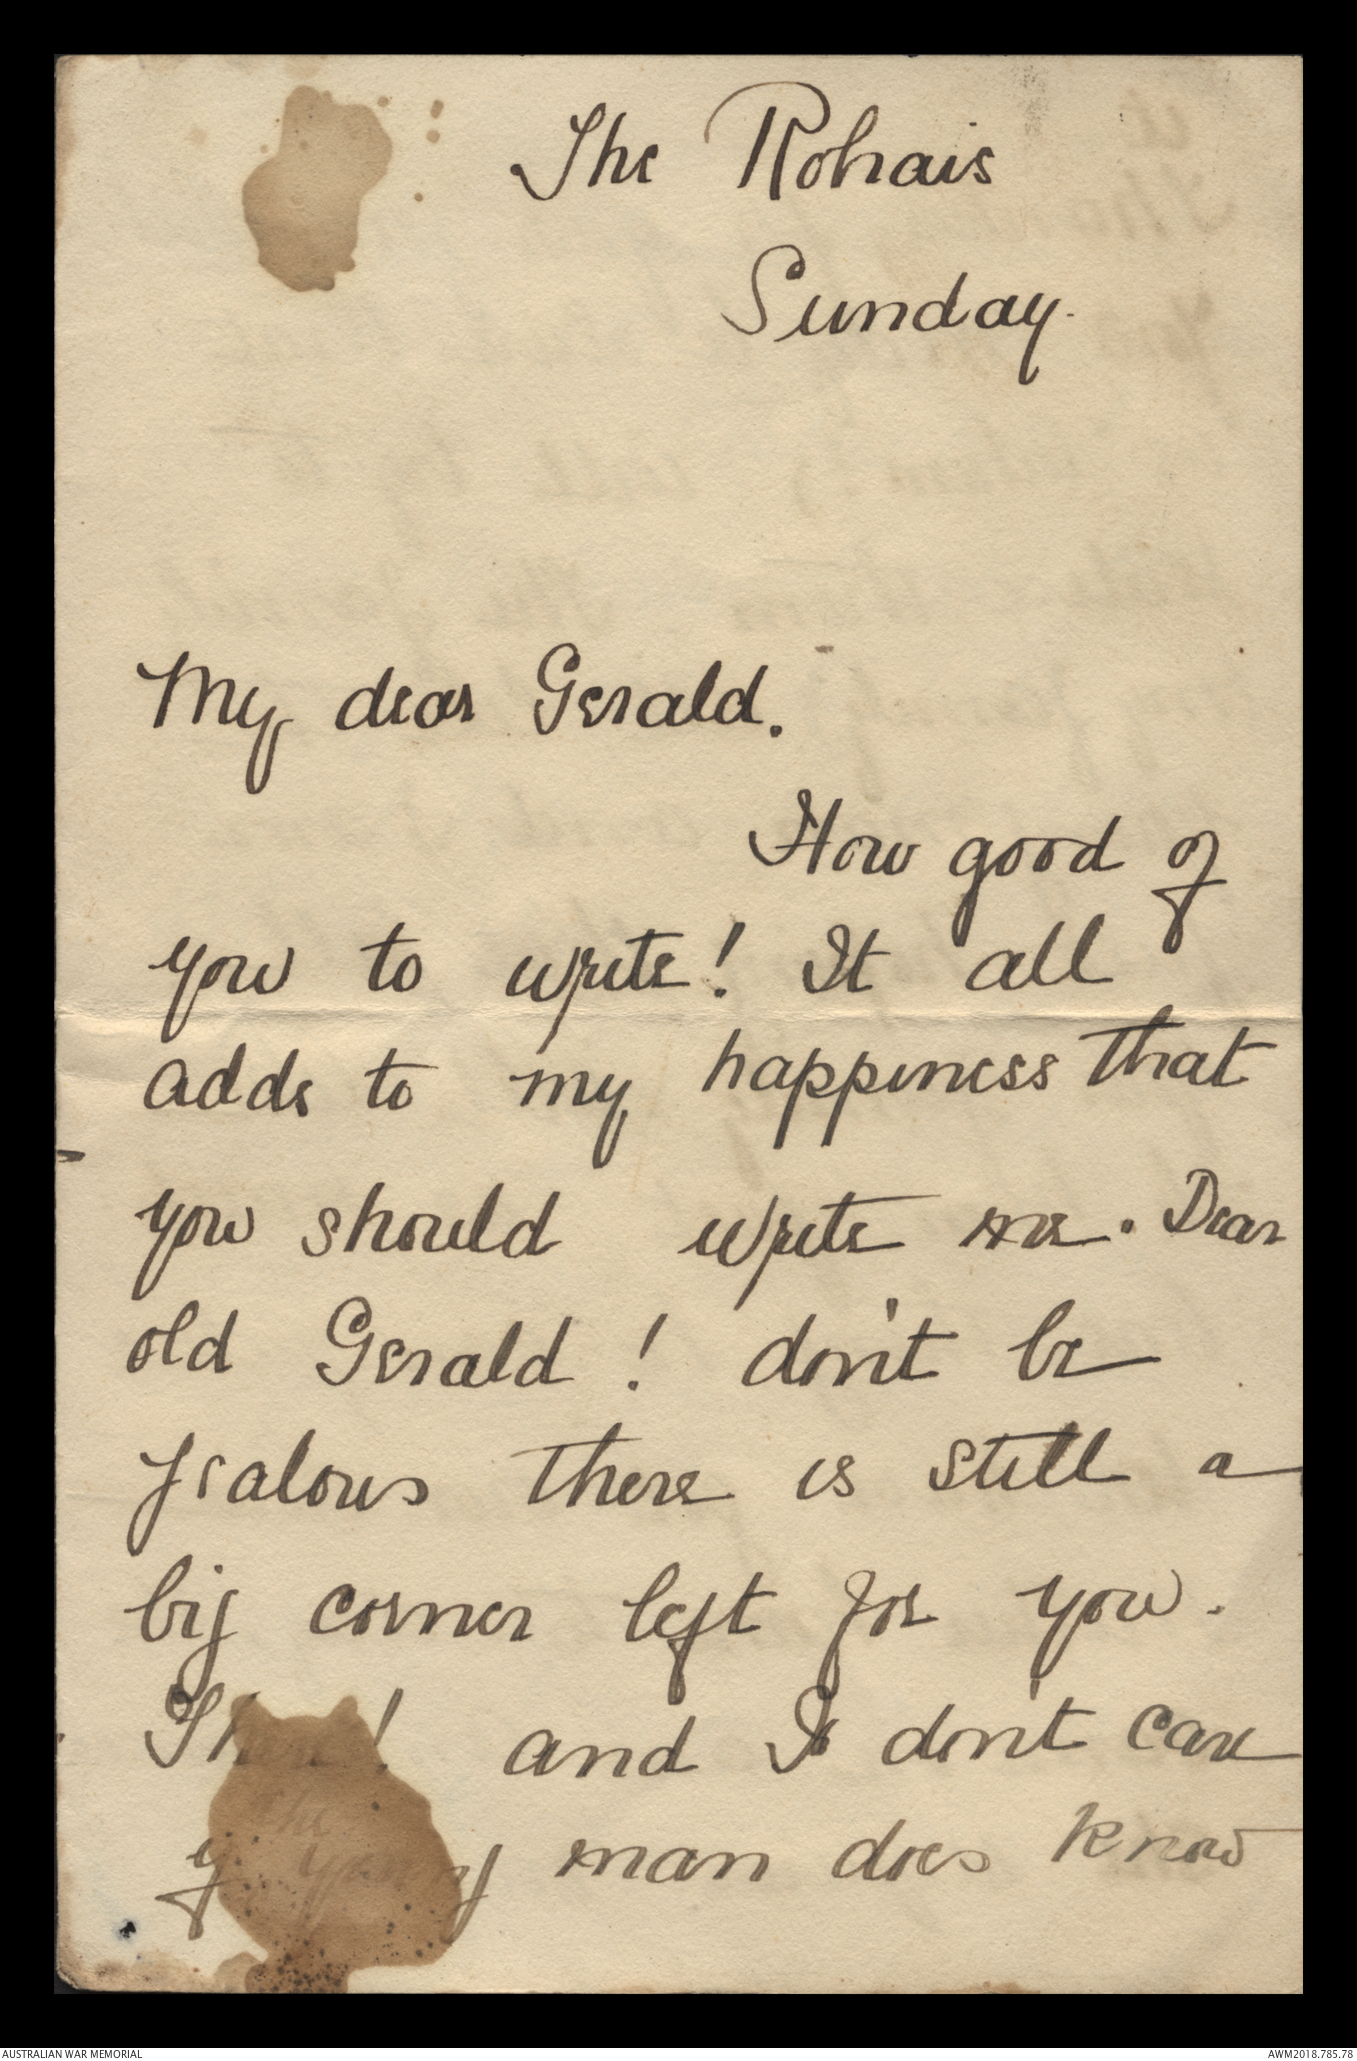 The Rohais
Sunday.
My dear Gerald.
How good of
you to write! It all
adds to my happiness that
you should write me. Dear
old Gerald! don't be
jealous there is still a
big corner left for you.
There! and I don't care
if young man does know
AUSTRALIAN WAR MEMORIAL
AWM2018.785.78